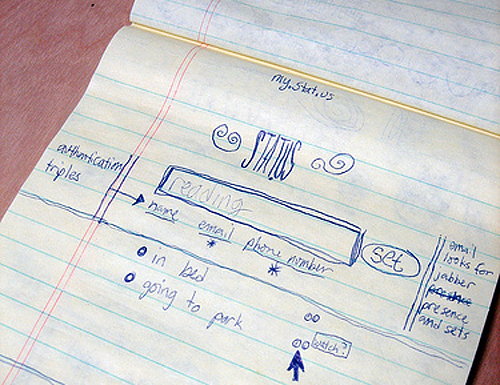 my.stat.us
STATUS
authentication
triples
reading
name email phone number
set
email
looks for
jabber
presence
presence
and sets
in bed
going to park
watch?